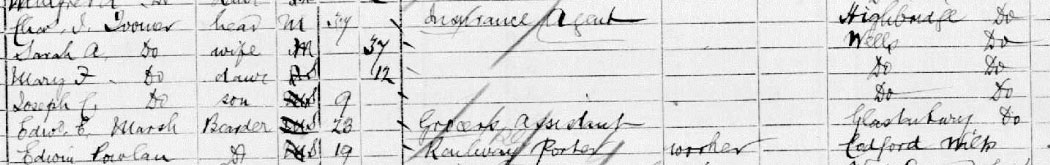 J. head M 37 Insurance Agent Highbridge Do
Sarah A. Do wife M 37 Wells Do
Mary F. Do daur 12 Do Do
Joseph C. Do son 9 Do Do
Edwd. E. Marsh Boarder 23 Grocers Assistant Glastonbury Do
Edwin Do 19 Railway Porter worker Wilts